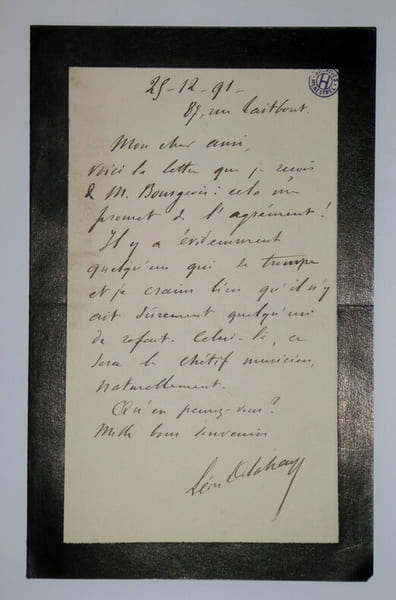 25-12-91-
87, rue Taitbout.
Mon cher ami,
Voici la lettre que je reçois
de M. Bourgeois : cela m'en
promet de l'agrément !
Il y a évidemment
quelqu'un qui se trompe
et je crains bien qu'il n'y
ait sûrement quelqu'un
de refait. Celui-là, ce
sera le chétif musicien,
naturellement.
Qu'en pensez-vous ?
Mille bons souvenirs
Léon Delahaye
H